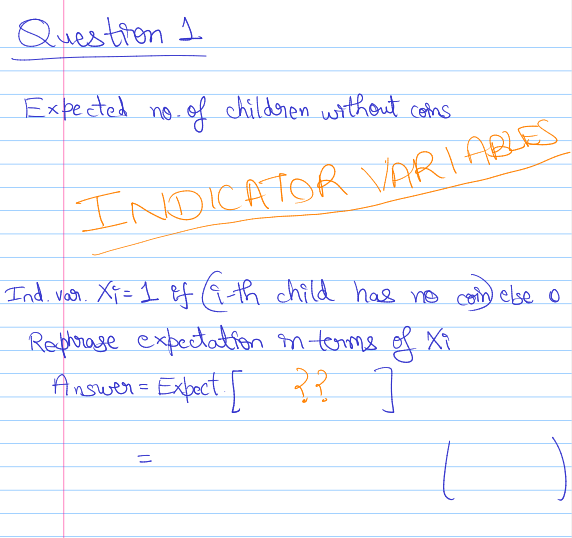 Question 1
Expected no. of children without coins
INDICATOR VARIABLES
Ind. var. Xi = 1 if (i-th child has no coin) else 0
Rephrase expectation in terms of Xi
Answer = Expect. [ ?? ]
= ( )